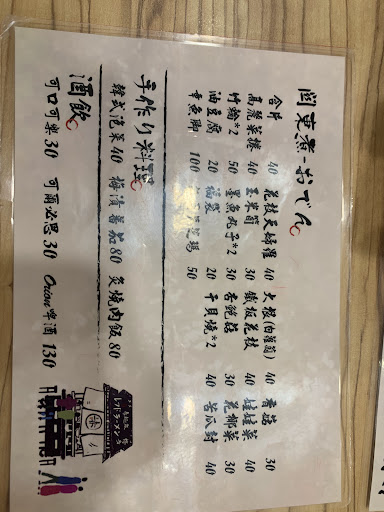 關東煮-おでん
合片 40 花枝天婦羅 40 大根(白蘿蔔) 40 香菇 30
高麗菜捲 40 玉米筍 30 鐵板花枝 40 娃娃菜 40
竹輪*2 50 墨魚丸子*2 30 杏鮑菇 30 花椰菜 30
油豆腐 20 福袋 20 干貝燒*2 40 苦瓜封 40
章魚腳 100 50
手作り料理
韓式泡菜 40 梅漬蕃茄 80 炙燒肉飯 80
酒飲
可口可樂 30 可爾必思 30 Orion啤酒 130